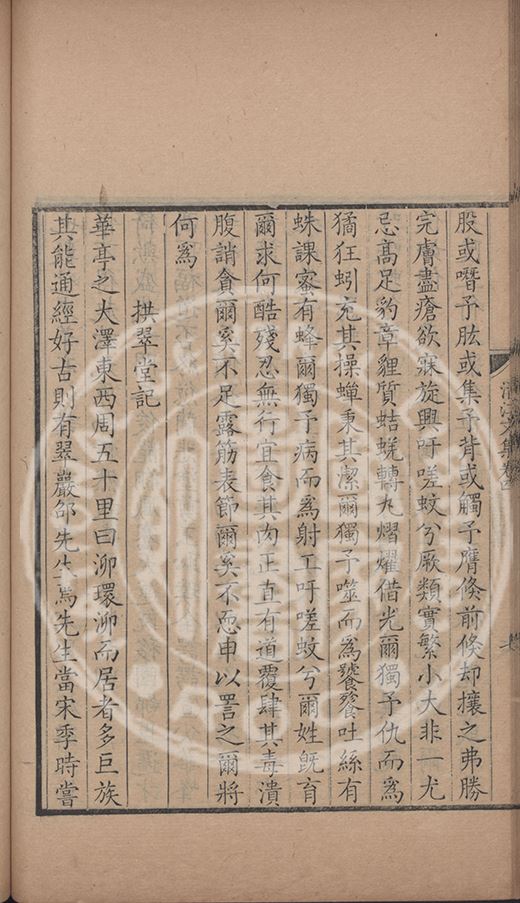 股或噆予肱或集予背或觸予膺倐前倐却攘之弗勝
完膚盡瘡欲寐旋興吁嗟蚊兮厥類實繁小大非一尤
忌高足豹章貍質蛣蜣轉丸熠燿借光爾獨予仇而爲
猖狂蚓充其操蟬秉其潔爾獨予噬而爲饕餮吐絲有
蛛課審有蜂爾獨予病而爲射工吁嗟蚊兮爾姓旣育
爾求何酷殘忍無行宜食其肉正直有道覆肆其毒潰
腹誚貪爾奚不足露筋表節爾奚不恧申以詈之爾將
何爲
拱翠堂記
華亭之大澤東西周五十里曰泖環泖而居者多巨族
其能通經好古則有翠巖邵先生焉先生當宋季時嘗